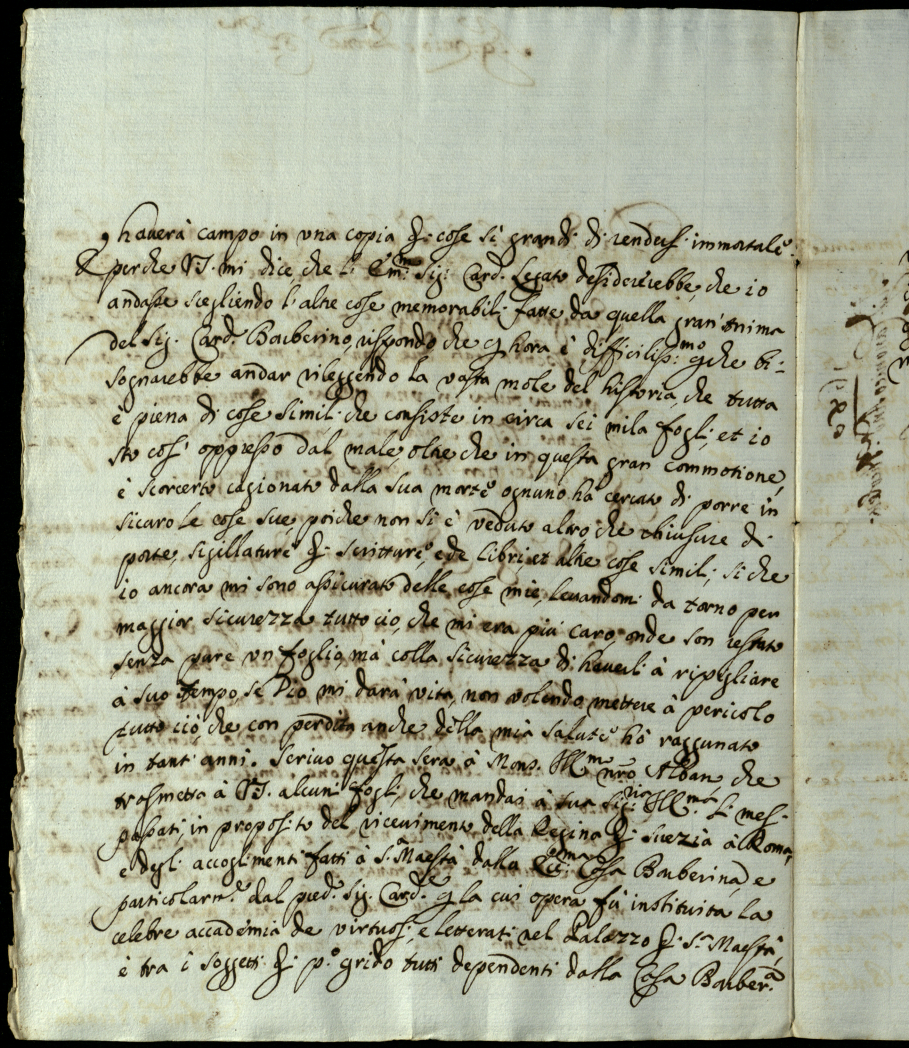 haverà campo in una copia di cose sì grandi di rendersi immortale.
E perche V.S. mi dice, che l'Em.mo Sig. Card. Legato desidererebbe, che io
andasse scegliendo l'altre cose memorabili fatte da quella gran'Anima
del Sig. Card. Barberino, rispondo che p hora è difficiliss.mo pche bi=
sognarebbe andar rileggendo la vasta mole del historia, che tutta
è piena di cose simili che consiste in circa sei mila fogli, et io
sto così oppresso dal male, oltre che in questa gran commotione,
è sconcerto cagionato dalla sua morte ognuno hà cercato di porre in
sicuro le cose sue, poiche non si è veduto altro che chiusure di
porte, sigillature di scritture, e de libri et altre cose simili, si che
io ancora mi sono assicurato delle cose mie, levandomi da torno per
maggior sicurezza tutto ciò, che mi era più caro, onde son restato
senza pure un foglio, mà colla sicurezza di haverli à ripigliare
à suo tempo, se Dio mi darà vita, non volendo mettere à pericolo
tutto ciò, che con perdita anche della mia salute hò raggunato
in tant'anni. Scrivo questa sera à Mons. Ill.mo nr̃o Alban che
trasmetta à V.S. alcuni fogli, che mandai à sua Sig.ria Ill.ma li mesi
passati in proposito del ricevimento della Regina di Svezia à Roma,
e degli accoglimenti fatti à S. Maestà dalla Ecc.ma Casa Barberina, e
particolarm.e dal pred.o Sig. Card.e p la cui opera fù instituita la
celebre accademia de virtuosi, e letterati nel Palazzo di S. Maestà,
è tra i soggetti di p.o grido tutti dependenti dalla Casa Barber.a